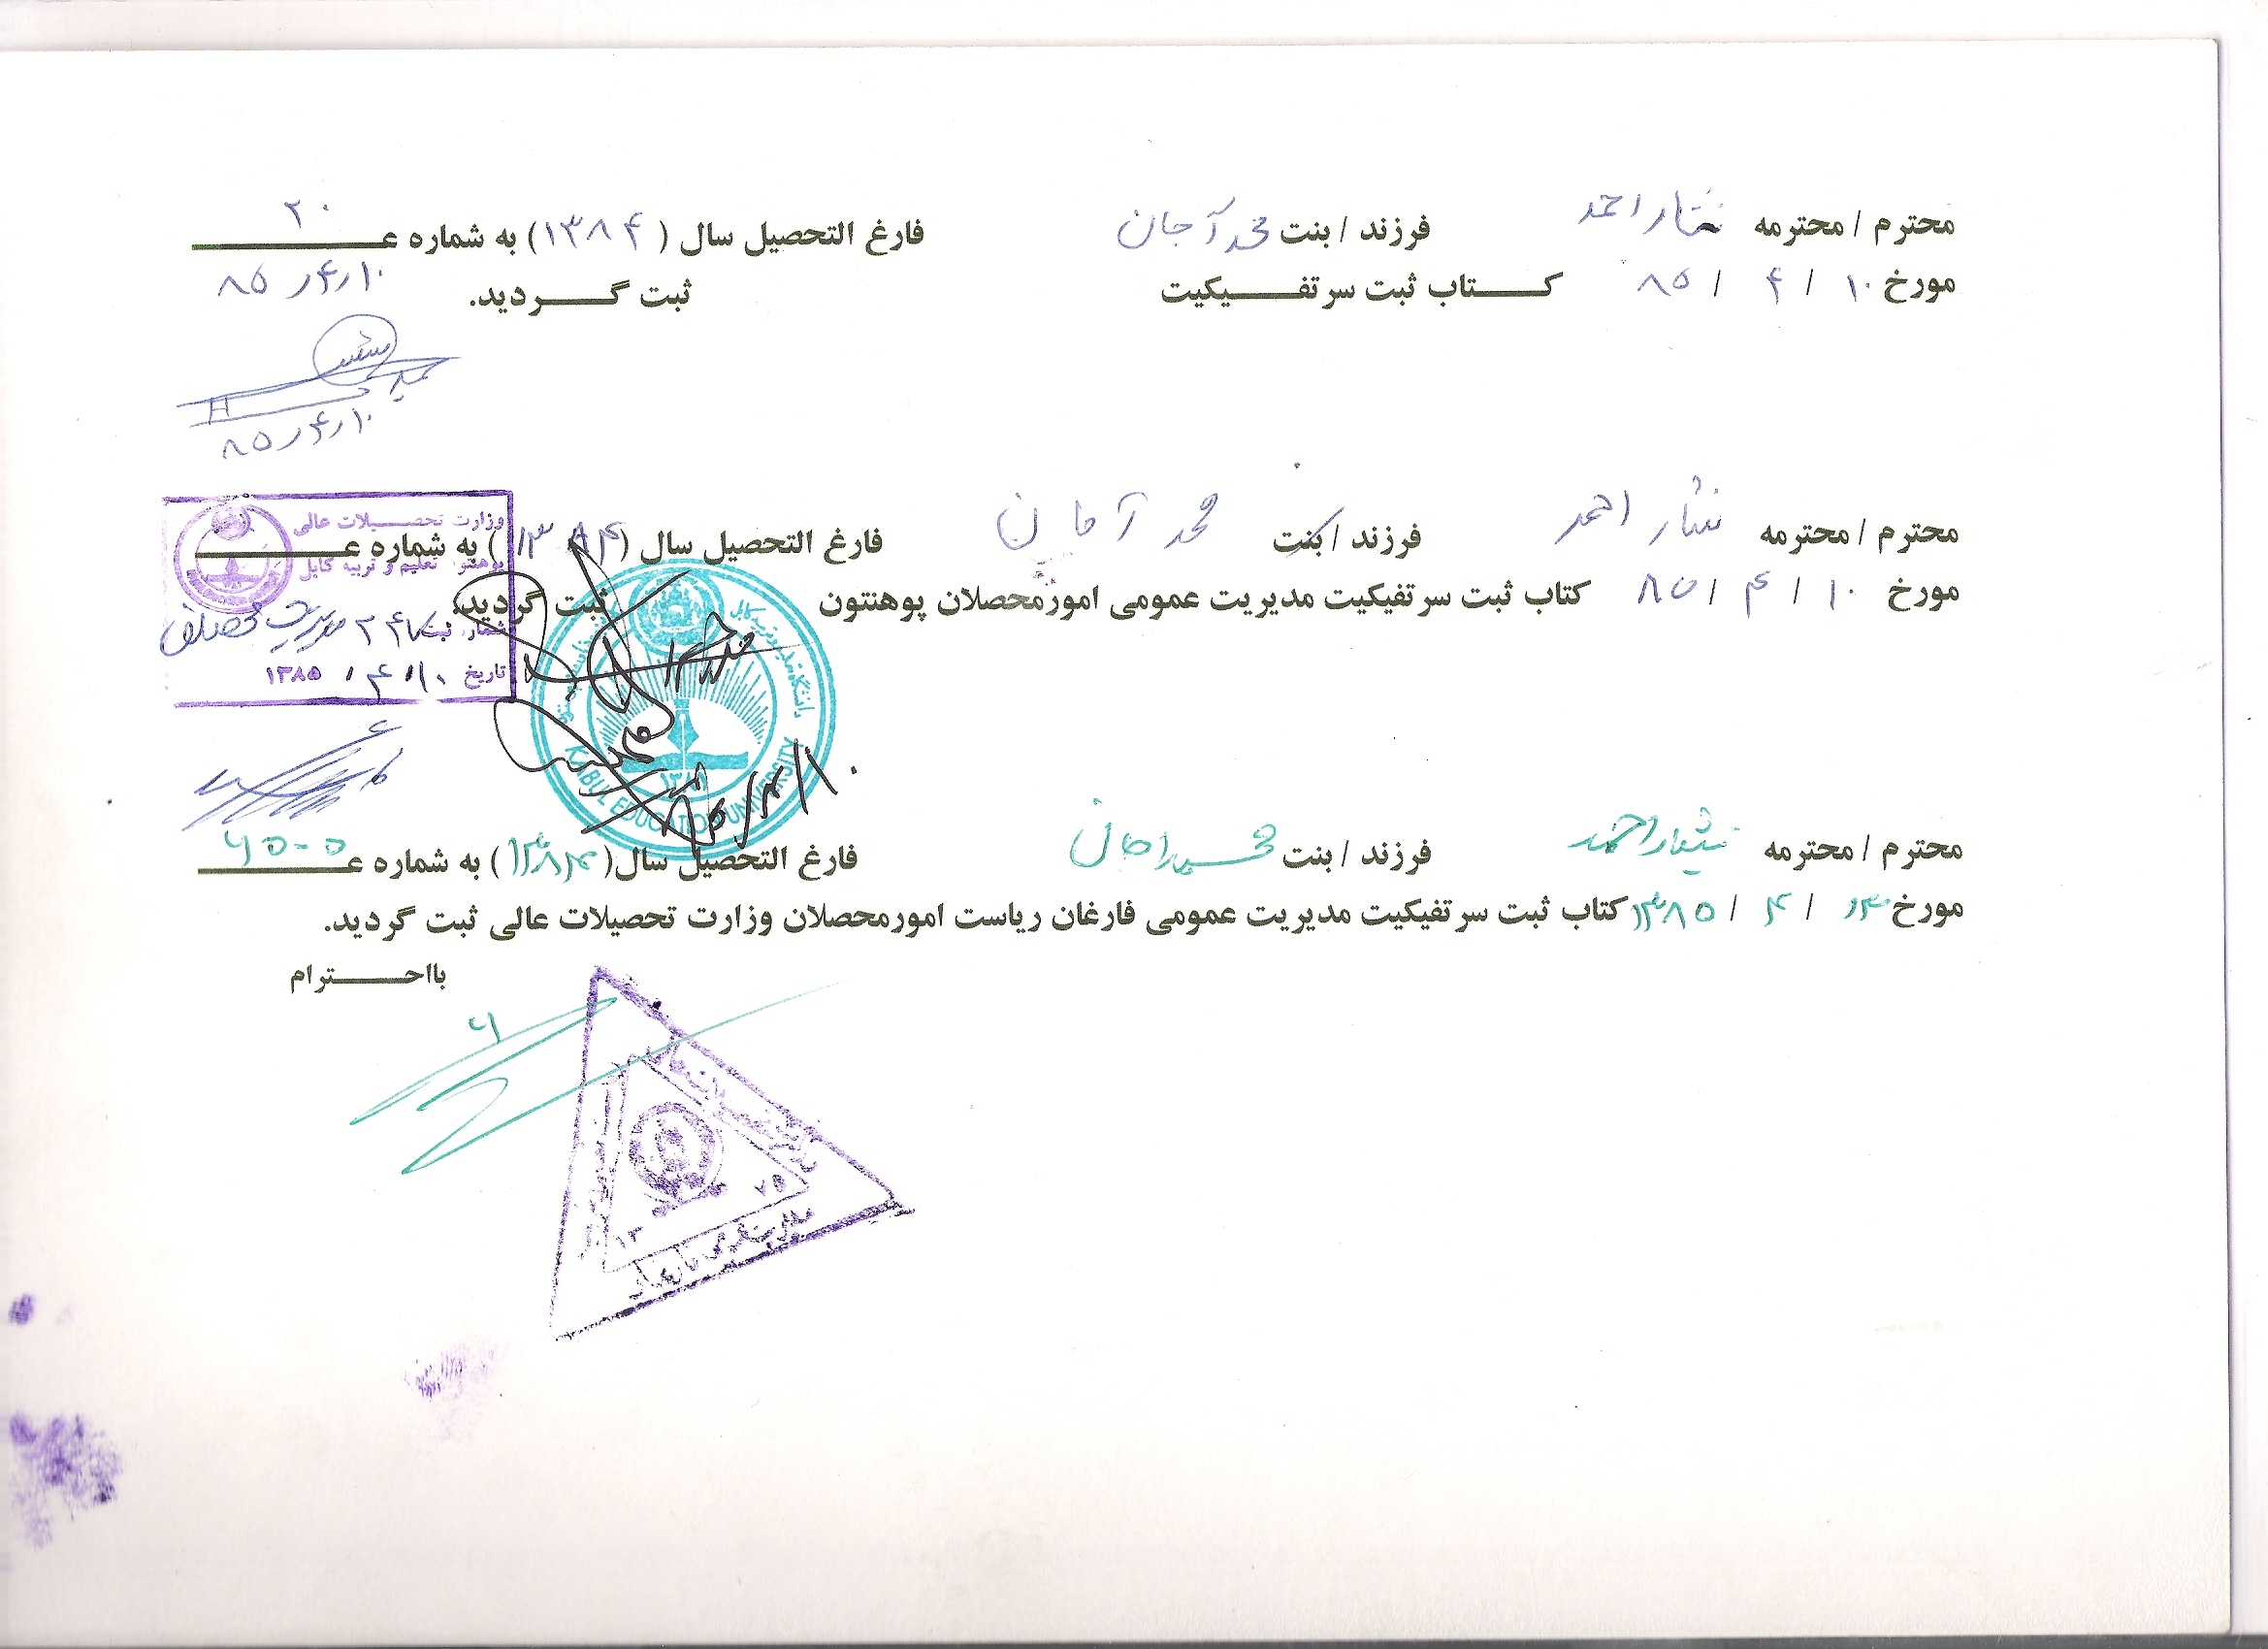 محترم / محترمه نثار احمد فرزند / بنت محمد آجان فارغ التحصیل سال (۱۳۸۴) به شماره عـــــــ ۲۰
مورخ ۱۰ / ۴ / ۸۵ کـــــتاب ثبت سرتفـــــیکیت ثبت گـــــردید.
۱۰ر۴ر۸۵
۱۰ر۴ر۸۵
محترم / محترمه نثار احمد فرزند / بنت محمد آجان فارغ التحصیل سال (۱۳۸۴) به شماره عـــــــ
مورخ ۱۰ / ۴ / ۸۵ کتاب ثبت سرتفیکیت مدیریت عمومی امورمحصلان پوهنتون ثبت گردید.
وزارت تحصـــیلات عالی
پوهنتون تعلیم و تربیه کابل
شماره ثبت ۲۴۷ مدیریت محصلان
تاریخ ۱۰ / ۴ / ۱۳۸۵
KABUL EDUCATION UNIVERSITY
۸۵/۴/۱۰
محترم / محترمه نثار احمد فرزند / بنت محمد اجان فارغ التحصیل سال (۱۳۸۴) به شماره عـــــــ ۶۵۰۵
مورخ ۱۳ / ۴ / ۱۳۸۵ کتاب ثبت سرتفیکیت مدیریت عمومی فارغان ریاست امورمحصلان وزارت تحصیلات عالی ثبت گردید.
بااحـــــترام
۱۳ ۷۵